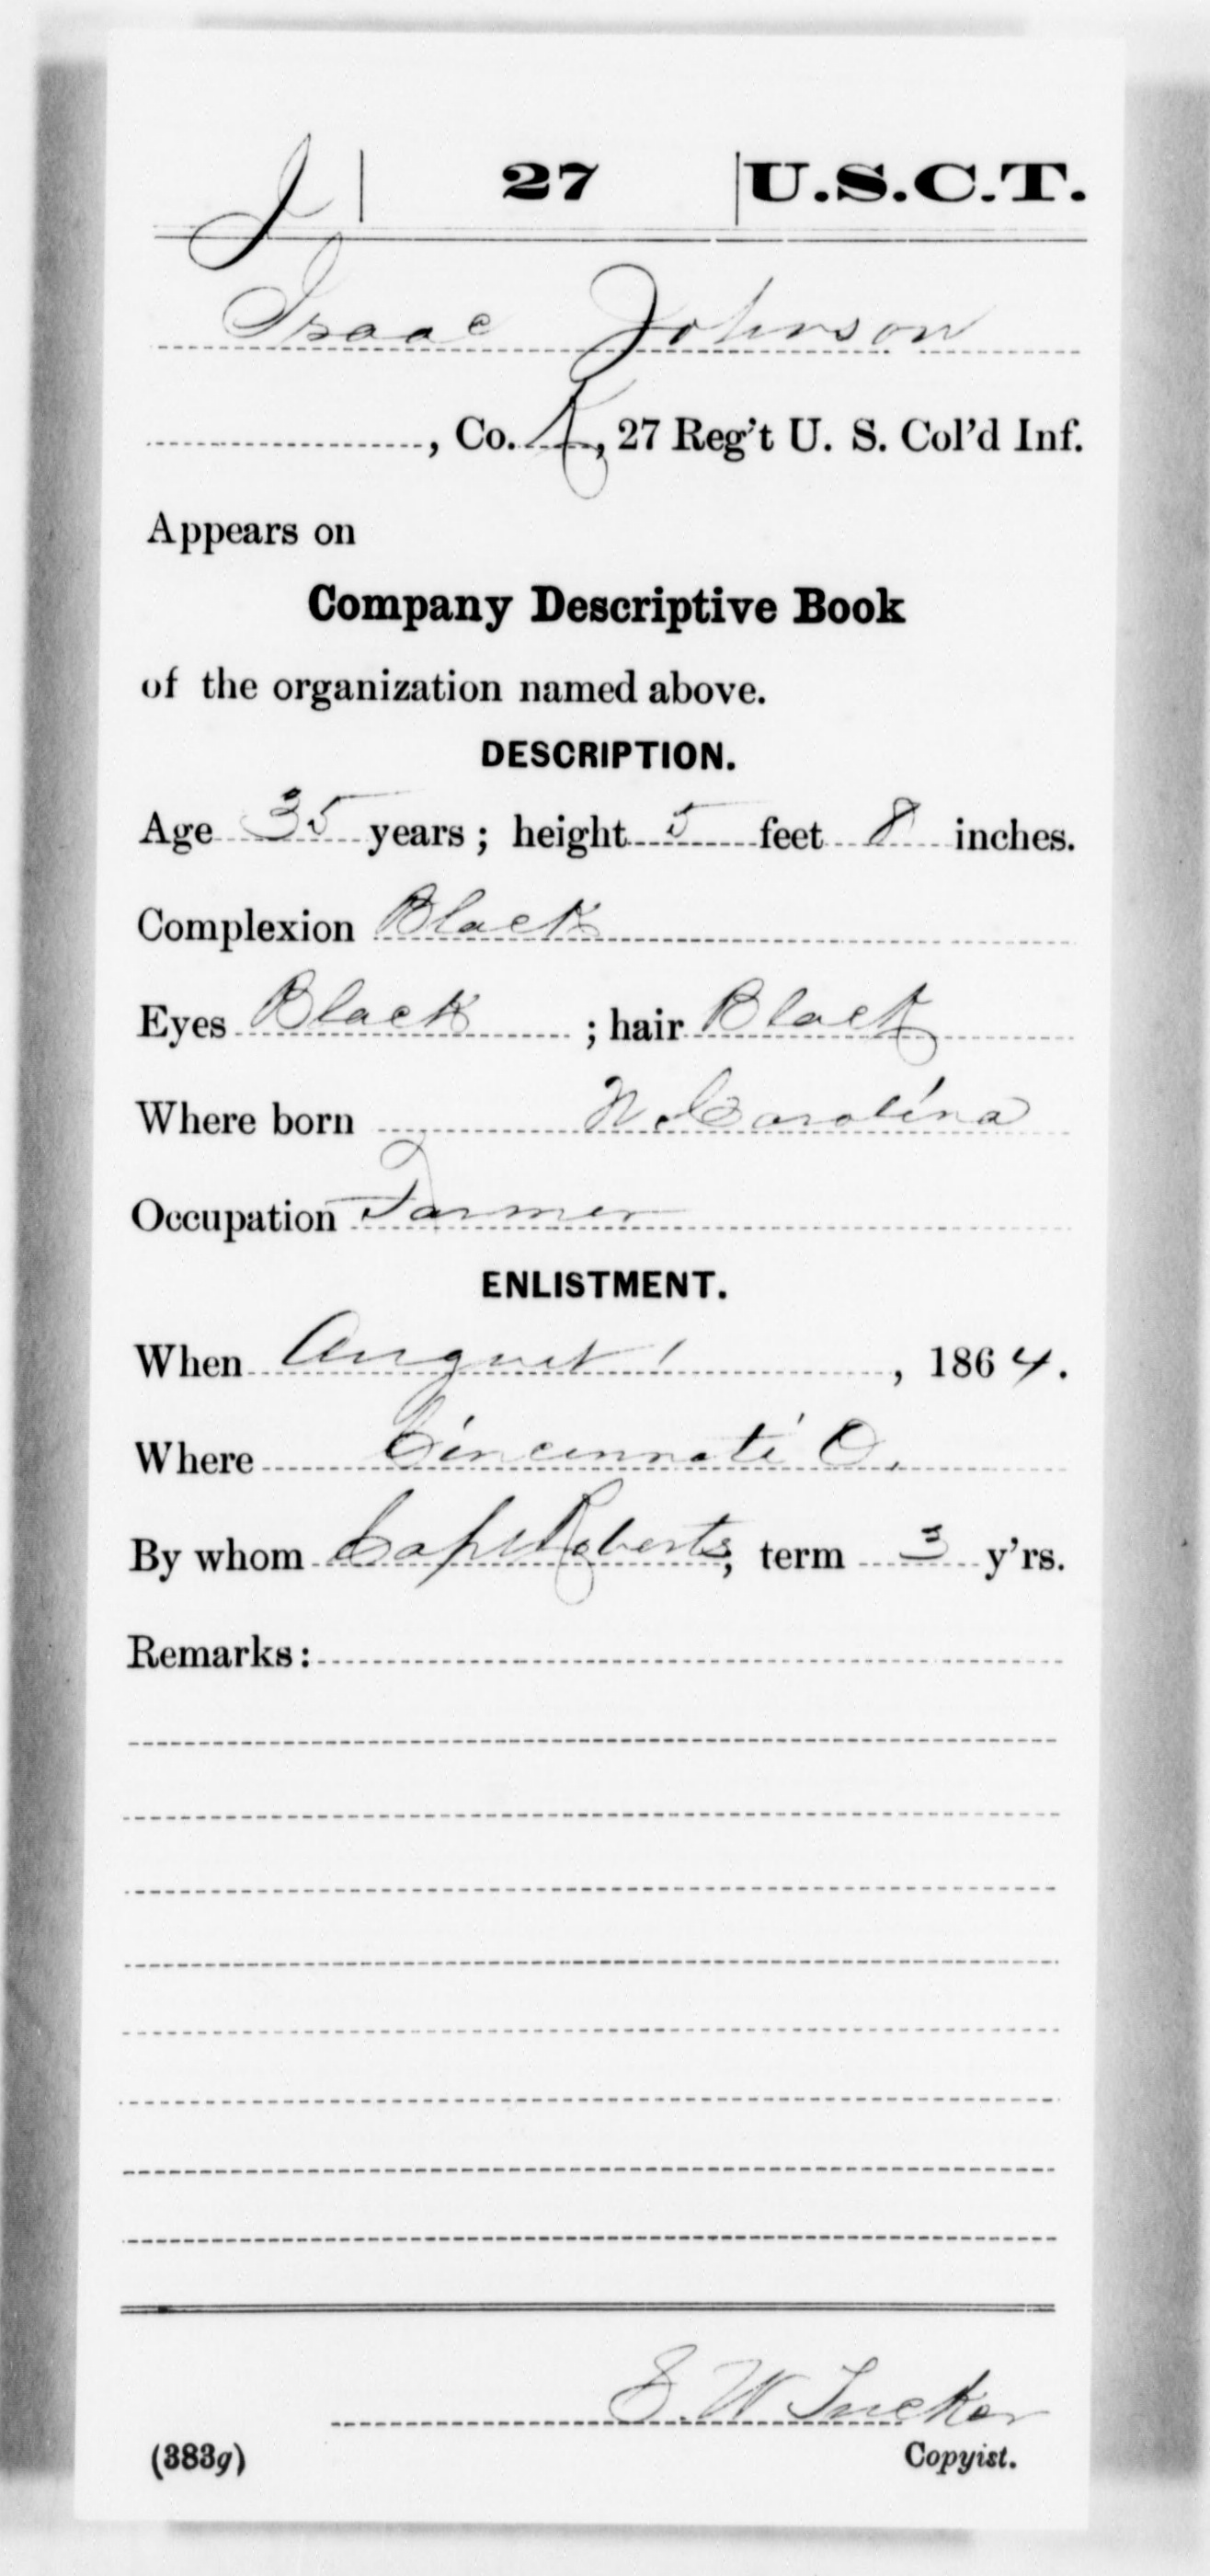 J | 27 | U.S.C.T.
Isaac Johnson
, Co. K, 27 Reg't U. S. Col'd Inf.
Appears on
Company Descriptive Book
of the organization named above.
DESCRIPTION.
Age 35 years; height 5 feet 8 inches.
Complexion Black
Eyes Black; hair Black
Where born N. Carolina
Occupation Farmer
ENLISTMENT.
When August 1, 1864.
Where Cincinnati O.
By whom Capt Roberts; term 3 y'rs.
Remarks:
S. W. Tucker
(383g) Copyist.